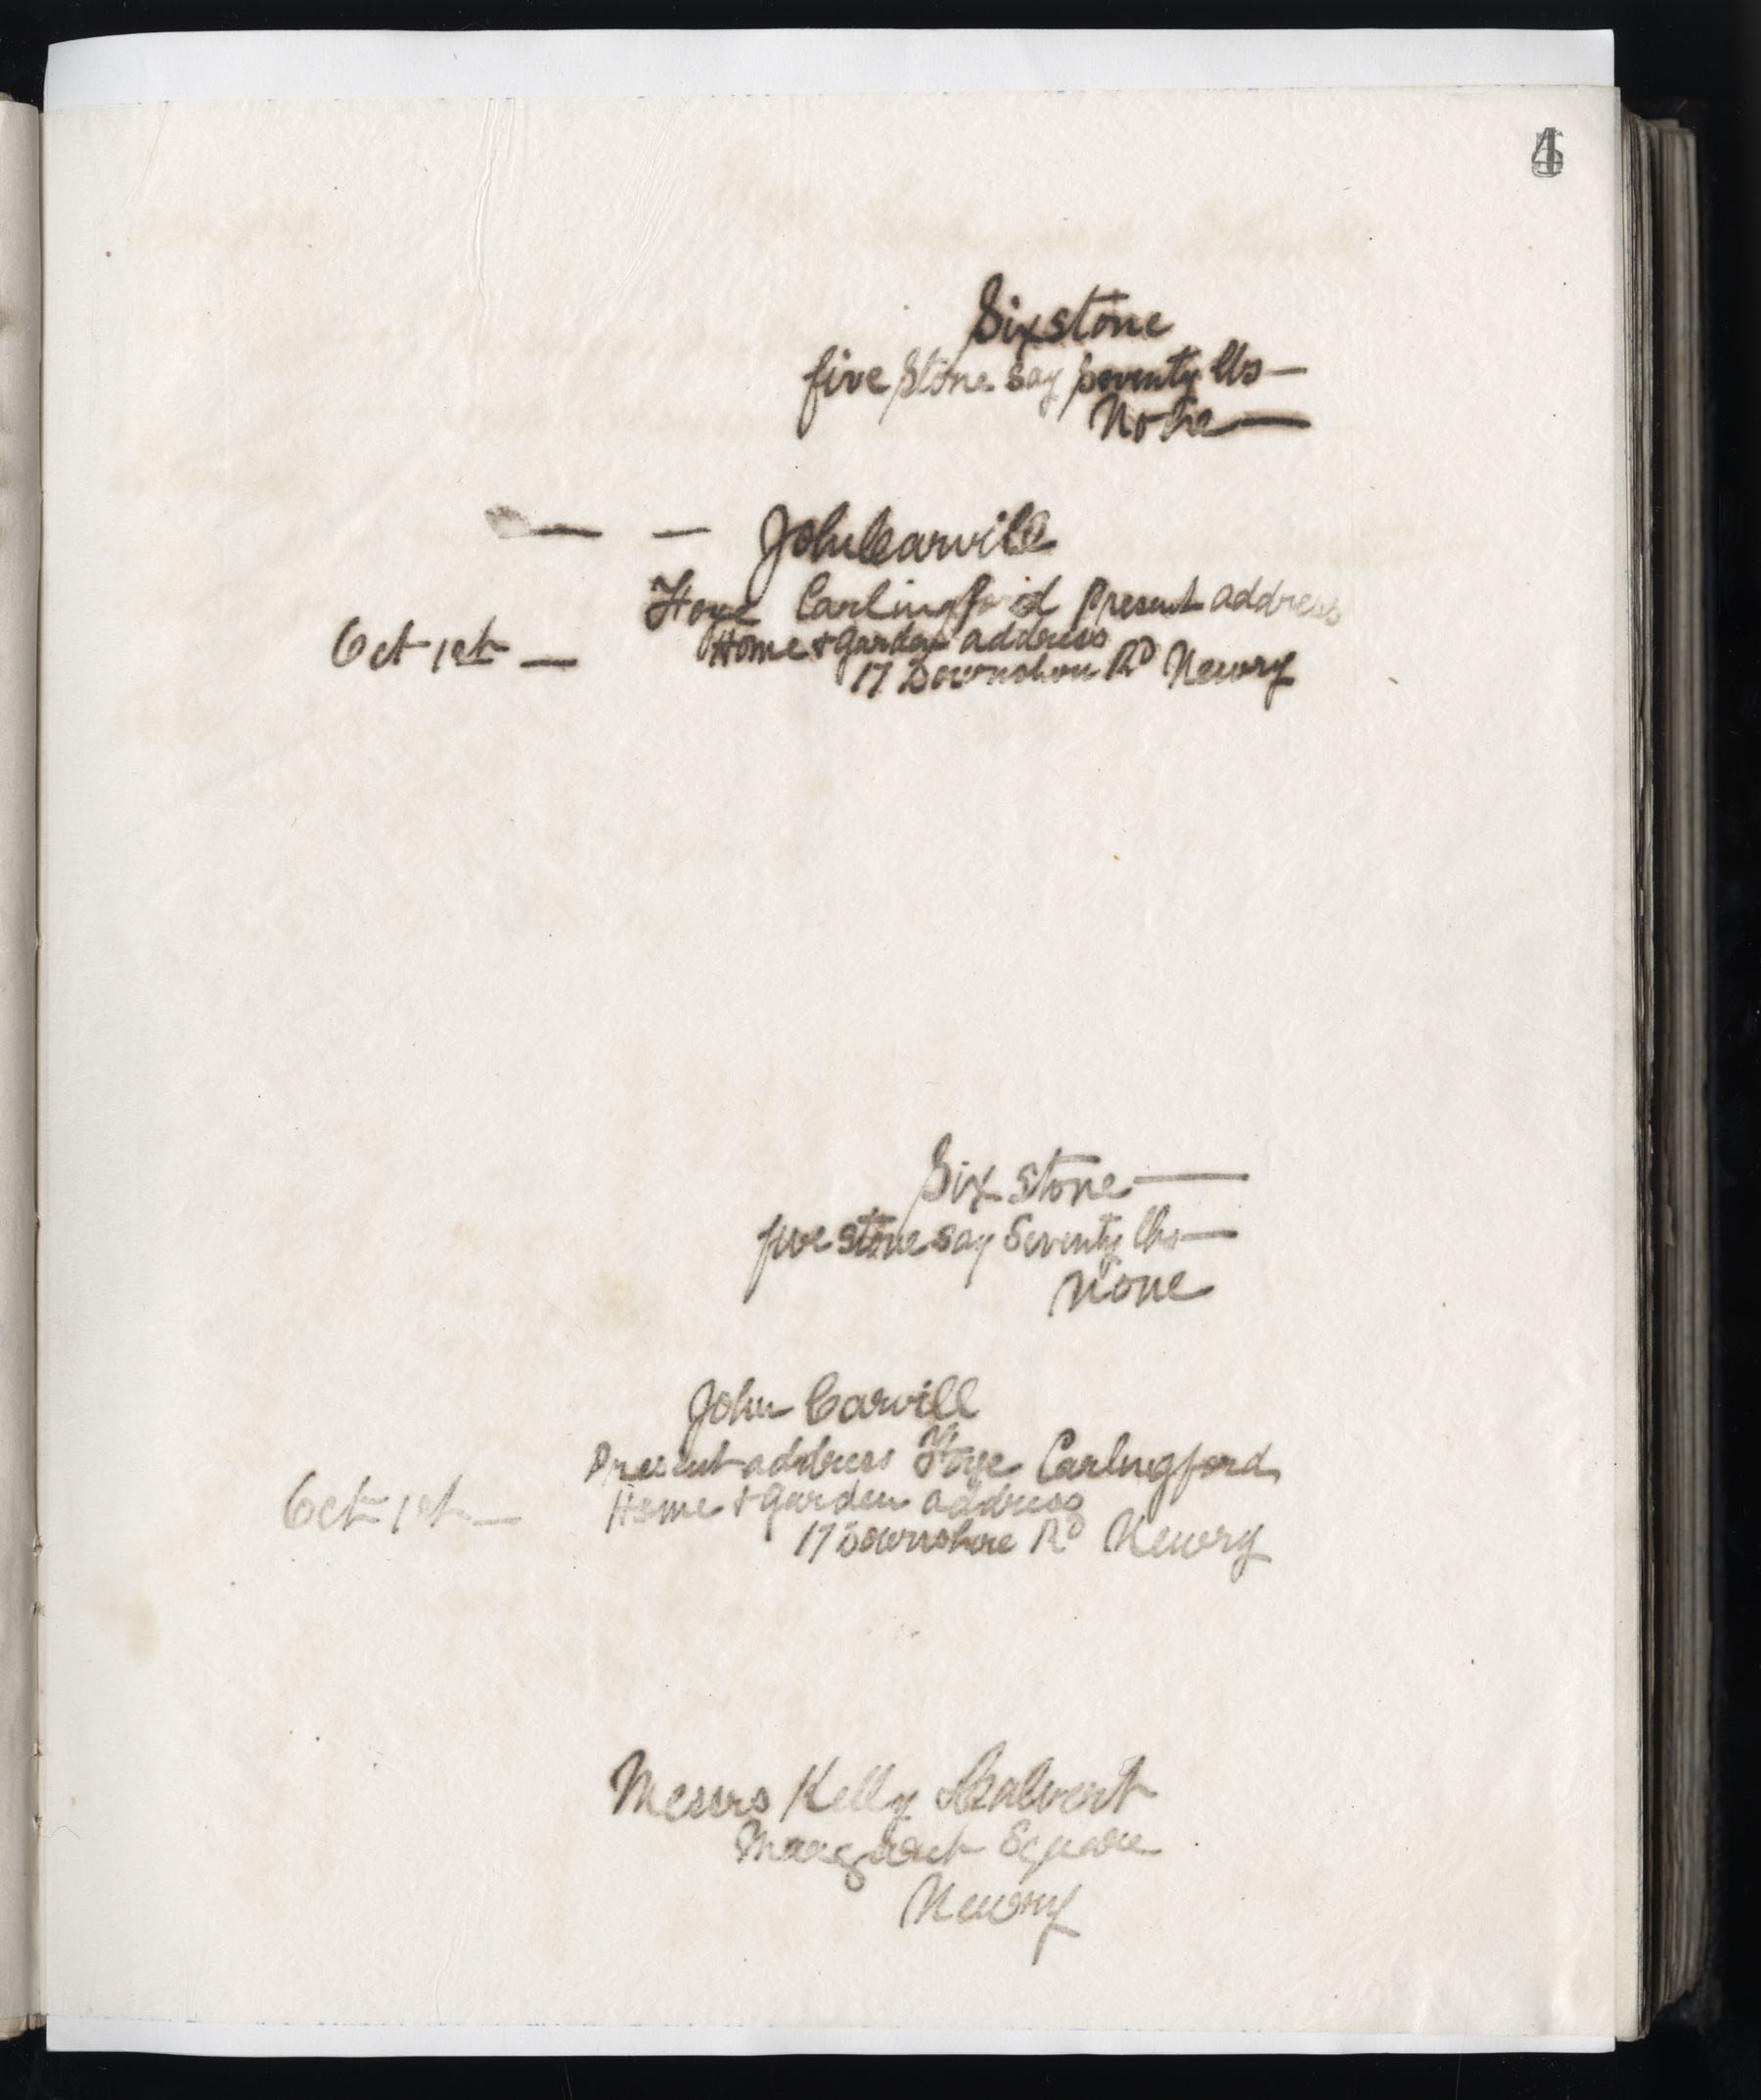 Six stone
five stone say seventy lbs —
None —
— — John Carvill
Carlingford Present address
Home + garden address
Oct 1st —
17 Downshire Rd Newry
Six stone —
five stone say Seventy lbs —
None
John Carvill
Present address Carlingford
Home + garden address
Oct 1st —
17 Downshire Rd Newry
Messrs Kelly
Margaret Square
Newry